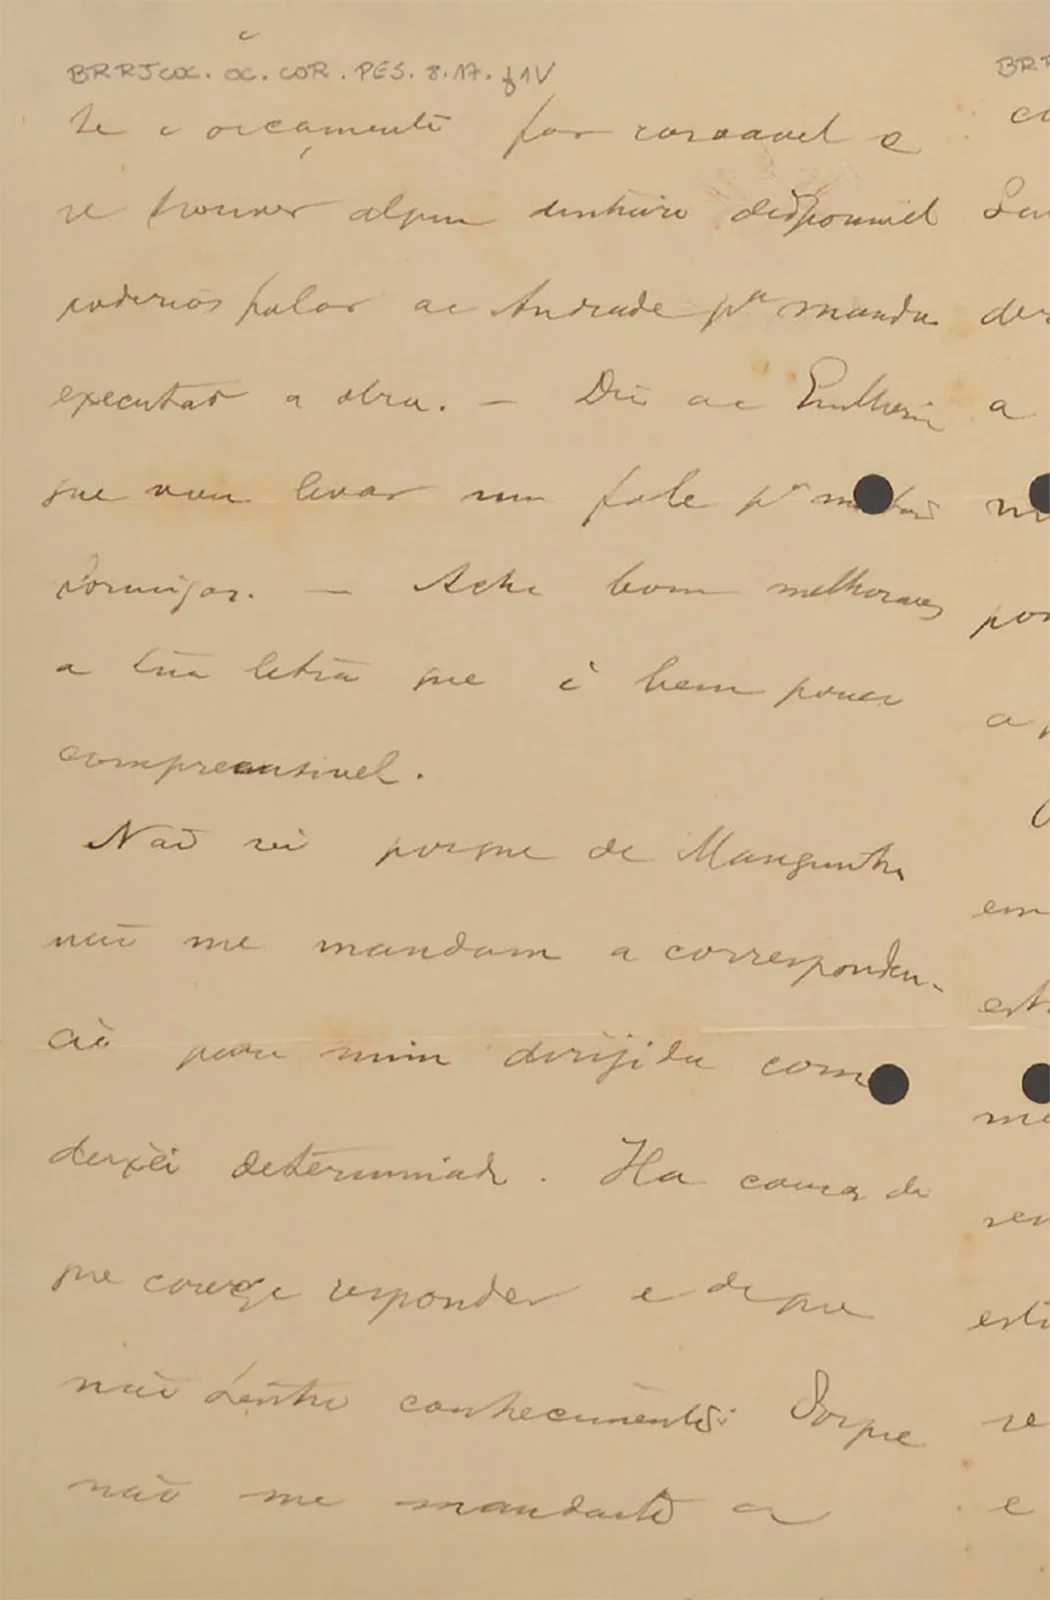 BRRJCOC. OC. COR. PES. 8.17. f1V
Se o orçamento for rasoavel e
se houver algum dinheiro disponivel
poderias falar ao Andrade pª mandar
executar a obra. — Diz ao Guilherme
que vou levar um fole pª matar
formigas. — Acho bom melhorares
a tua letra que é bem pouco
comprensivel.
Não sei porque de Manguinhos
não me mandam a corresponden-
cia para mim dirijida como
deixei determinado. Ha cousas de
que careço responder e de que
não tenho conhecimento. Porque
não me mandaste a
BRR
a
em
e